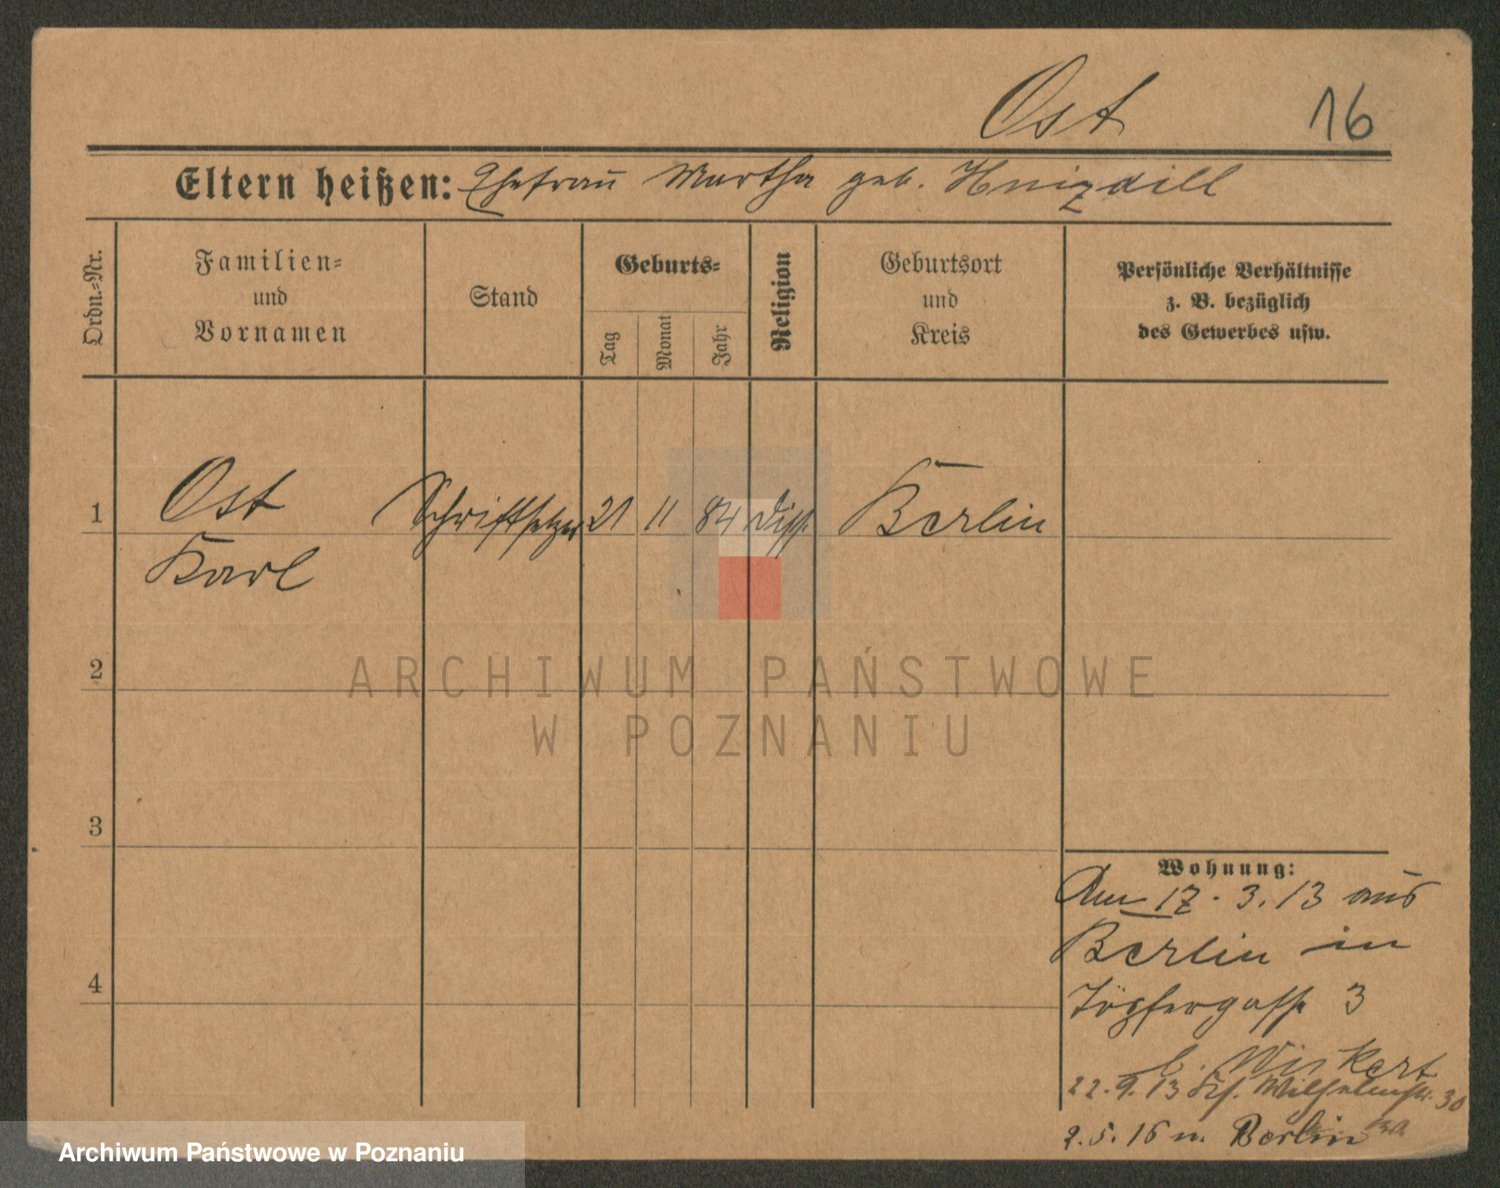 Ost 16
Eltern heißen: Ehefrau Martha geb.
Ordn.-Nr.
Familien-
und
Vornamen
Stand
Geburts-
Tag
Monat
Jahr
Religion
Geburtsort
und
Kreis
Persönliche Verhältnisse
z. B. bezüglich
des Gewerbes usw.
1 Ost Schriftsetzer 21 11 84 diss. Berlin
Karl
2
ARCHIWUM PAŃSTWOWE
W POZNANIU
3
4
Wohnung:
Am 17.3.13 aus
Berlin in
Töpfergasse 3
b. Winkert
22.9.13 Wilhelmstr. 30
2.5.16 n. Berlin
Archiwum Państwowe w Poznaniu